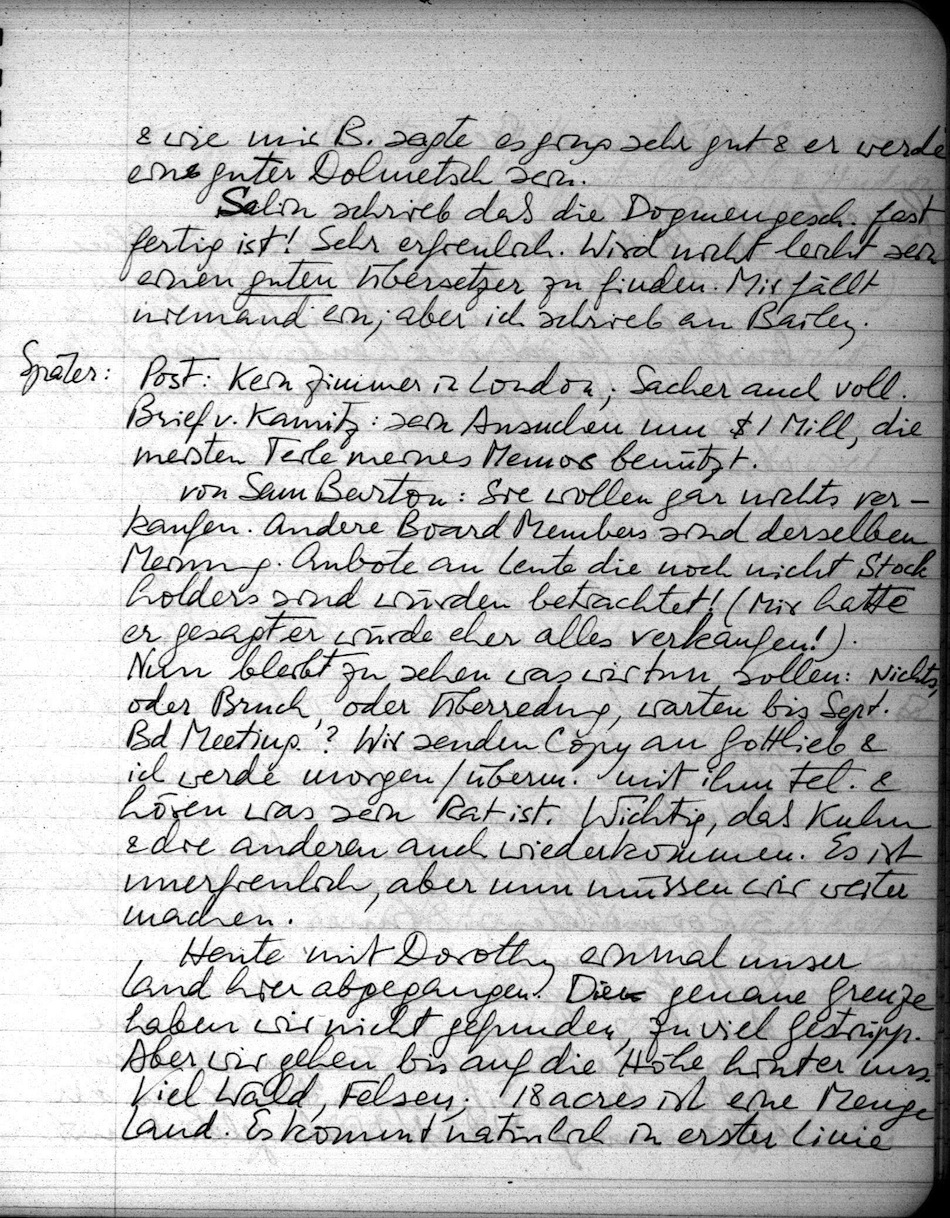 & wie mir B. sagte es ging sehr gut & er werde
ein guter Dolmetsch sein.
Salin schrieb daß die Dogmengesch. fast
fertig ist! Sehr erfreulich. Wird nicht leicht sein
einen guten Übersetzer zu finden. Mir fällt
niemand ein; aber ich schrieb an Bailey.
Später: Post: Kein Zimmer in London; Sacher auch voll.
Brief v. Kamitz: sein Ansuchen um $1 Mill, die
meisten Teile meines Memos benützt.
von Sam Barton: Sie wollen gar nichts ver-
kaufen. Andere Board Members sind derselben
Meinung. Anbote an Leute die noch nicht Stock
holders sind würden betrachtet! (Mir hatte
er gesagt er würde eher alles verkaufen!).
Nun bleibt zu sehen was wir tun sollen: Nichts,
oder Bruch, oder Überredung, warten bis Sept.
Bd Meeting? Wir senden Copy an Gottlieb &
ich werde morgen/überm. mit ihm tel. &
hören was sein Rat ist. Wichtig, daß Kuhn
& die anderen auch wiederkommen. Es ist
unerfreulich, aber nun müssen wir weiter
machen.
Heute mit Dorothy einmal unser
Land hier abgegangen. Die genaue Grenze
haben wir nicht gefunden, zu viel Gestrüpp.
Aber wir gehen bis auf die Höhe hinter uns.
Viel Wald, Felsen. 18 acres ist eine Menge
Land. Es kommt natürlich in erster Linie